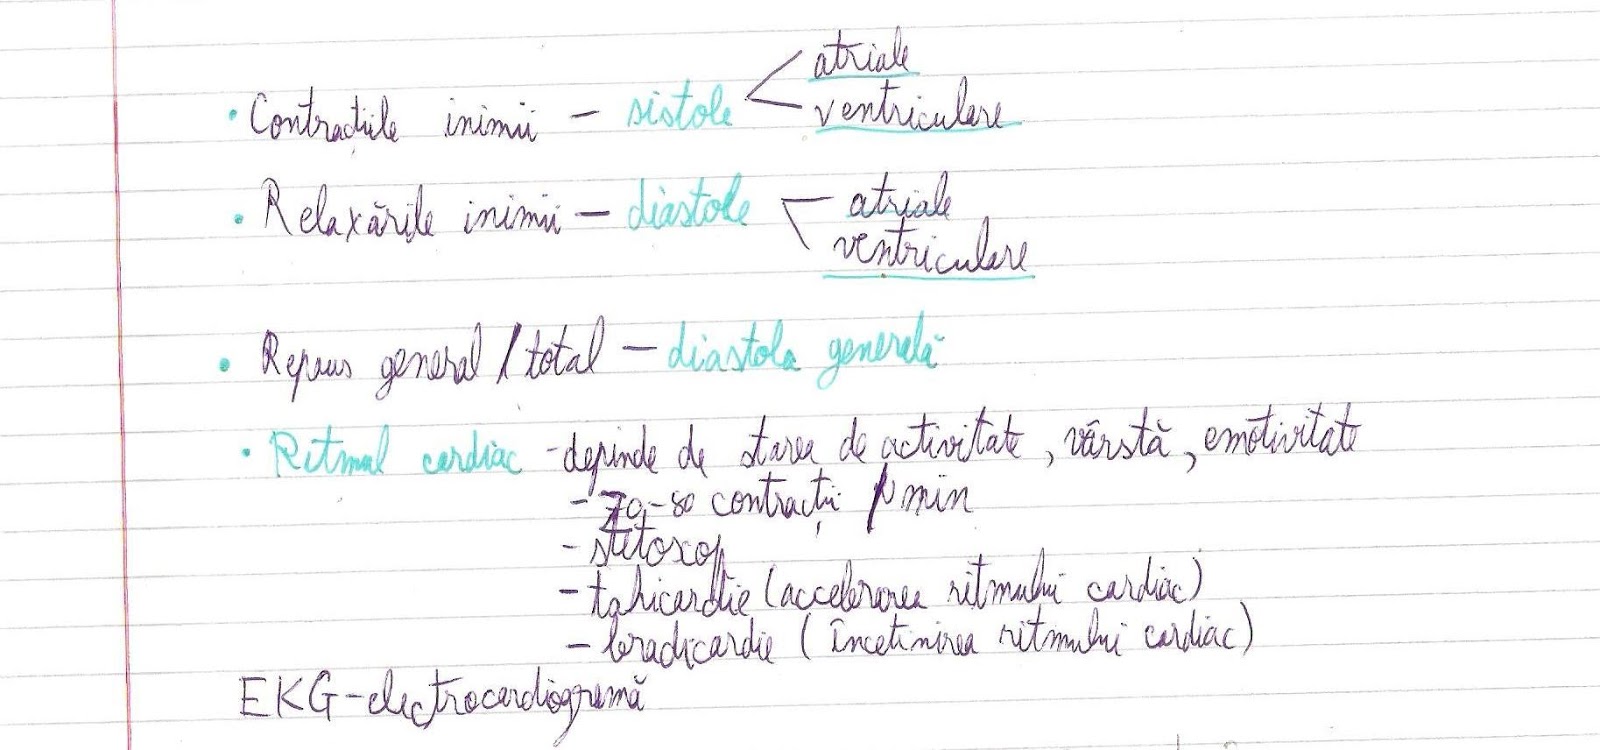 atriale
• Contracțiile inimii - sistole < ventriculare
• Relaxările inimii - diastole atriale
ventriculare
• Repaus general / total - diastola generală
• Ritmul cardiac - depinde de starea de activitate, vârstă, emotivitate
- 70-80 contracții / min
- stetoxop
- tahicardie (accelerarea ritmului cardiac)
- bradicardie (încetinirea ritmului cardiac)
EKG - electrocardiogramă